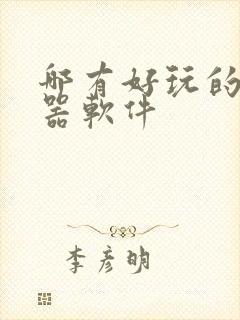 哪有好玩的
器軟件
李彦明